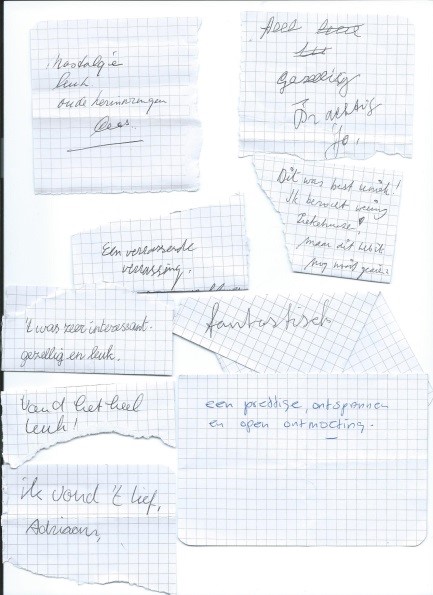 Nostalgie
leuk
oude herinneringen
Cees.
Heel
Gezellig
Prachtig
Jo,
Dit was best uniek!
Ik bezoek weinig
Ziekenhuizen
maar dit heb ik
nog nooit
Een verrassende
verrassing.
't was zeer interessant.
gezellig en leuk.
fantastisch
Vond het heel
leuk!
een prettige, ontspannen
en open ontmoeting.
ik vond 't lief,
Adriaens,